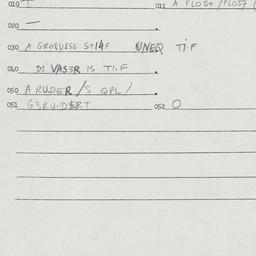 010 T 011 A FLOST/FLOST /
020 —
030 A GROQUBSE ST14F UNEQ TI.F
040 D1 VAS3R IS TI.F
050 A RUDER /S QPL/
051 G3RUIDERT 052 O